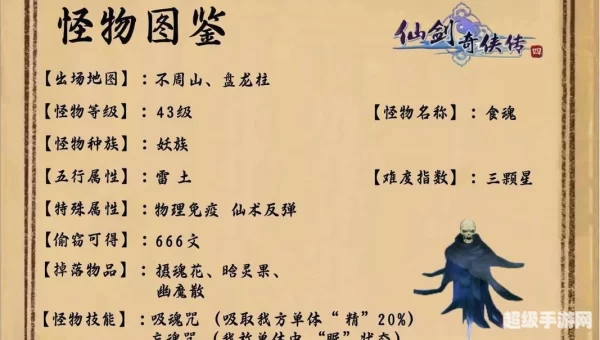 怪物图鉴
仙剑奇侠传 四
【出场地图】：不周山、盘龙柱
【怪物等级】：43级 【怪物名称】：食魂
【怪物种族】：妖族
【五行属性】：雷 土 【难度指数】：三颗星
【特殊属性】：物理免疫 仙术反弹
【偷窃可得】：666文
【掉落物品】：摄魂花、晗灵果、
幽魔散
【怪物技能】：吸魂咒 (吸取我方单体“精”20%)
超级手游网